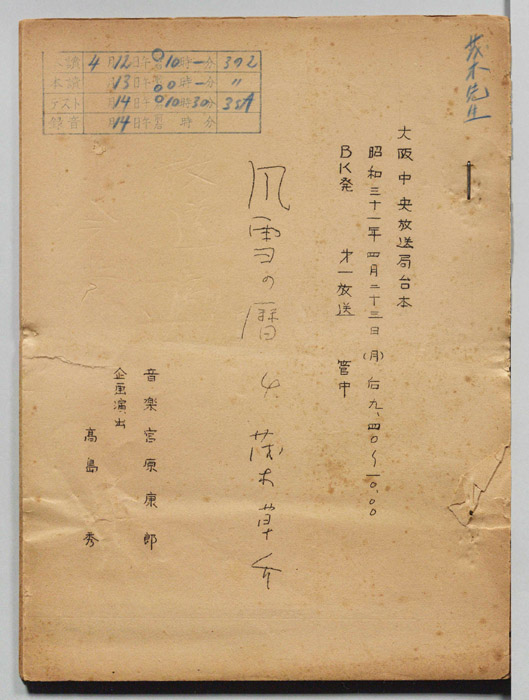 茂木先生
本読 4月12日午前後10時一分 392
本読 13日午前後00時一分 〃
テスト 月14日午前後10時30分 35A
録音 月14日午前後 時 分
大阪中央放送局台本
昭和三十一年四月二十三日(月)后九、四〇〜一〇、〇〇
BK発 才一放送 管中
風雪の暦 4 茂木草介
音楽 宮原康郎
企画演出
高島秀